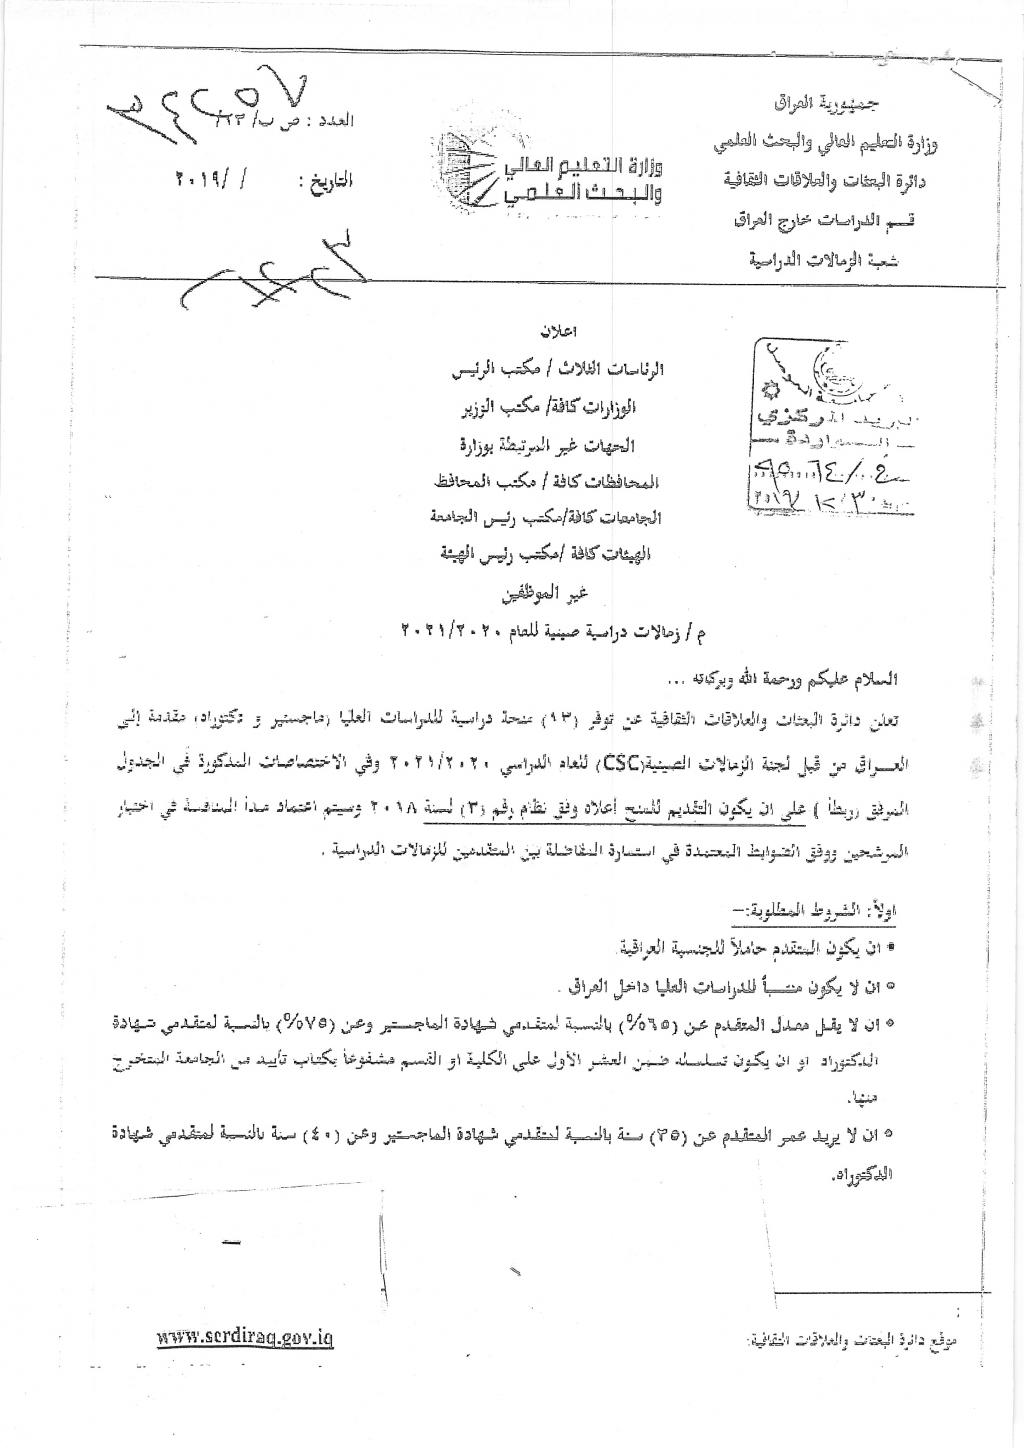 جمهورية العراق
وزارة التعليم العالي والبحث العلمي
دائرة البعثات والعلاقات الثقافية
قسم الدراسات خارج العراق
شعبة الزمالات الدراسية
وزارة التعليم العالي
والبحث العلمي
العدد : ص ب/
التاريخ : / /٢٠١٩
اعلان
الرئاسات الثلاث / مكتب الرئيس
الوزارات كافة/ مكتب الوزير
الجهات غير المرتبطة بوزارة
المحافظات كافة / مكتب المحافظ
الجامعات كافة/مكتب رئيس الجامعة
الهيئات كافة /مكتب رئيس الهيئة
غير الموظفين
البريد المركزي
الـــواردة
م / زمالات دراسية صينية للعام ٢٠٢١/٢٠٢٠
السلام عليكم ورحمة الله وبركاته ...
تعلن دائرة البعثات والعلاقات الثقافية عن توفر (٩٣) منحة دراسية للدراسات العليا (ماجستير و دكتوراه) مقدمة إلى
العـراق من قبل لجنة الزمالات الصينية(CSC) للعام الدراسي ٢٠٢١/٢٠٢٠ وفي الاختصاصات المذكورة في الجدول
المرفق (ربطاً ) على ان يكون التقديم للمنح أعلاه وفق نظام رقم (٣) لسنة ٢٠١٨ وسيتم اعتماد مبدأ المنافسة في اختيار
المرشحين ووفق الضوابط المعتمدة في استمارة المفاضلة بين المتقدمين للزمالات الدراسية .
اولاً: الشروط المطلوبة:–
• ان يكون المتقدم حاملاً للجنسية العراقية
• ان لا يكون منتسباً للدراسات العليا داخل العراق .
• ان لا يقل معدل المتقدم عن (٦٥%) بالنسبة لمتقدمي شهادة الماجستير وعن (٧٥%) بالنسبة لمتقدمي شهادة
الدكتوراه او ان يكون تسلسله ضمن العشر الأول على الكلية او القسم مشفوعاً بكتاب تأييد من الجامعة المتخرج
منها.
• ان لا يزيد عمر المتقدم عن (٣٥) سنة بالنسبة لمتقدمي شهادة الماجستير وعن (٤٠) سنة بالنسبة لمتقدمي شهادة
الدكتوراه.
موقع دائرة البعثات والعلاقات الثقافية:
www.scrdiraq.gov.iq